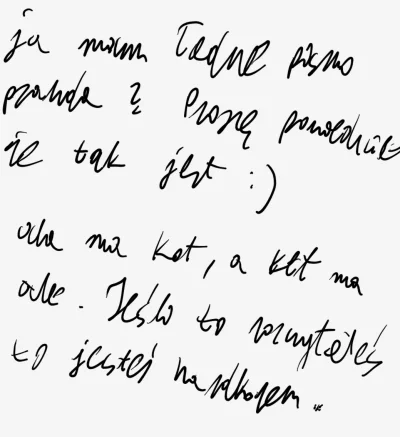 ja mam ładne pismo
prawda? Proszę powiedzcie
że tak jest :)
ola ma kot, a kot ma
ole. Jeśli to przeczytałeś
to jesteś